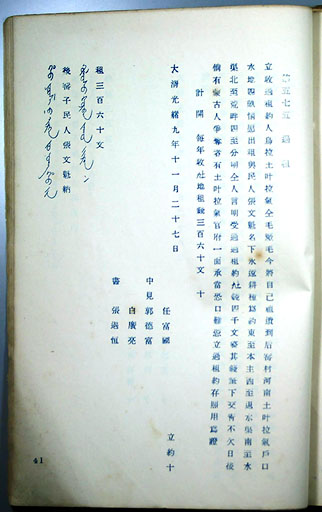 第五七五 過租
立收過租約人烏拉土叶拉氣仝毛髮毛今將自己祖遺到后窑村河南土叶拉氣戶口
水地四畝情愿出租與民人張文魁名下永遠耕種爲約東至本主西至退水渠南至水
渠北至荒畔四至分明仝人言明受過過租約扯錢四千文整其錢笔下交清不欠日後
倘有蒙古人爭奪者有土叶拉氣官府一面承當恐口無憑立過租約存照用爲證
計開 每年收扯地租錢三百六十文 十
大淸光緒九年十一月二十七日 立約十
任富國
中見郭德富
白廣亮
書 張過恆
租三百六十文
後窑子民人張文魁納
41